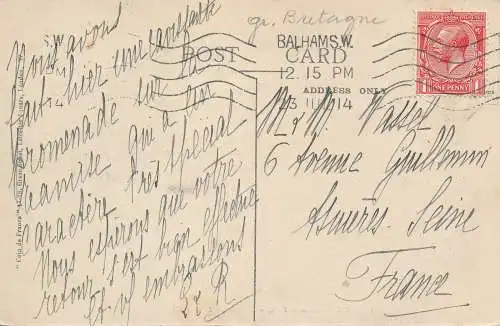 gr. Bretagne
S.W.
POST CARD
BALHAM.S.W.
12.15 PM
14
ADDRESS ONLY
ONE PENNY
Nous avons
fait hier une ravissante
promenade sur la
Tamise qui a un
caractère très spécial
Nous espérons que votre
retour s'est bien effectué
Et vs embrassons
R
M. & Mme Vassel
6 Avenue Guillemin
Asnières. Seine
France